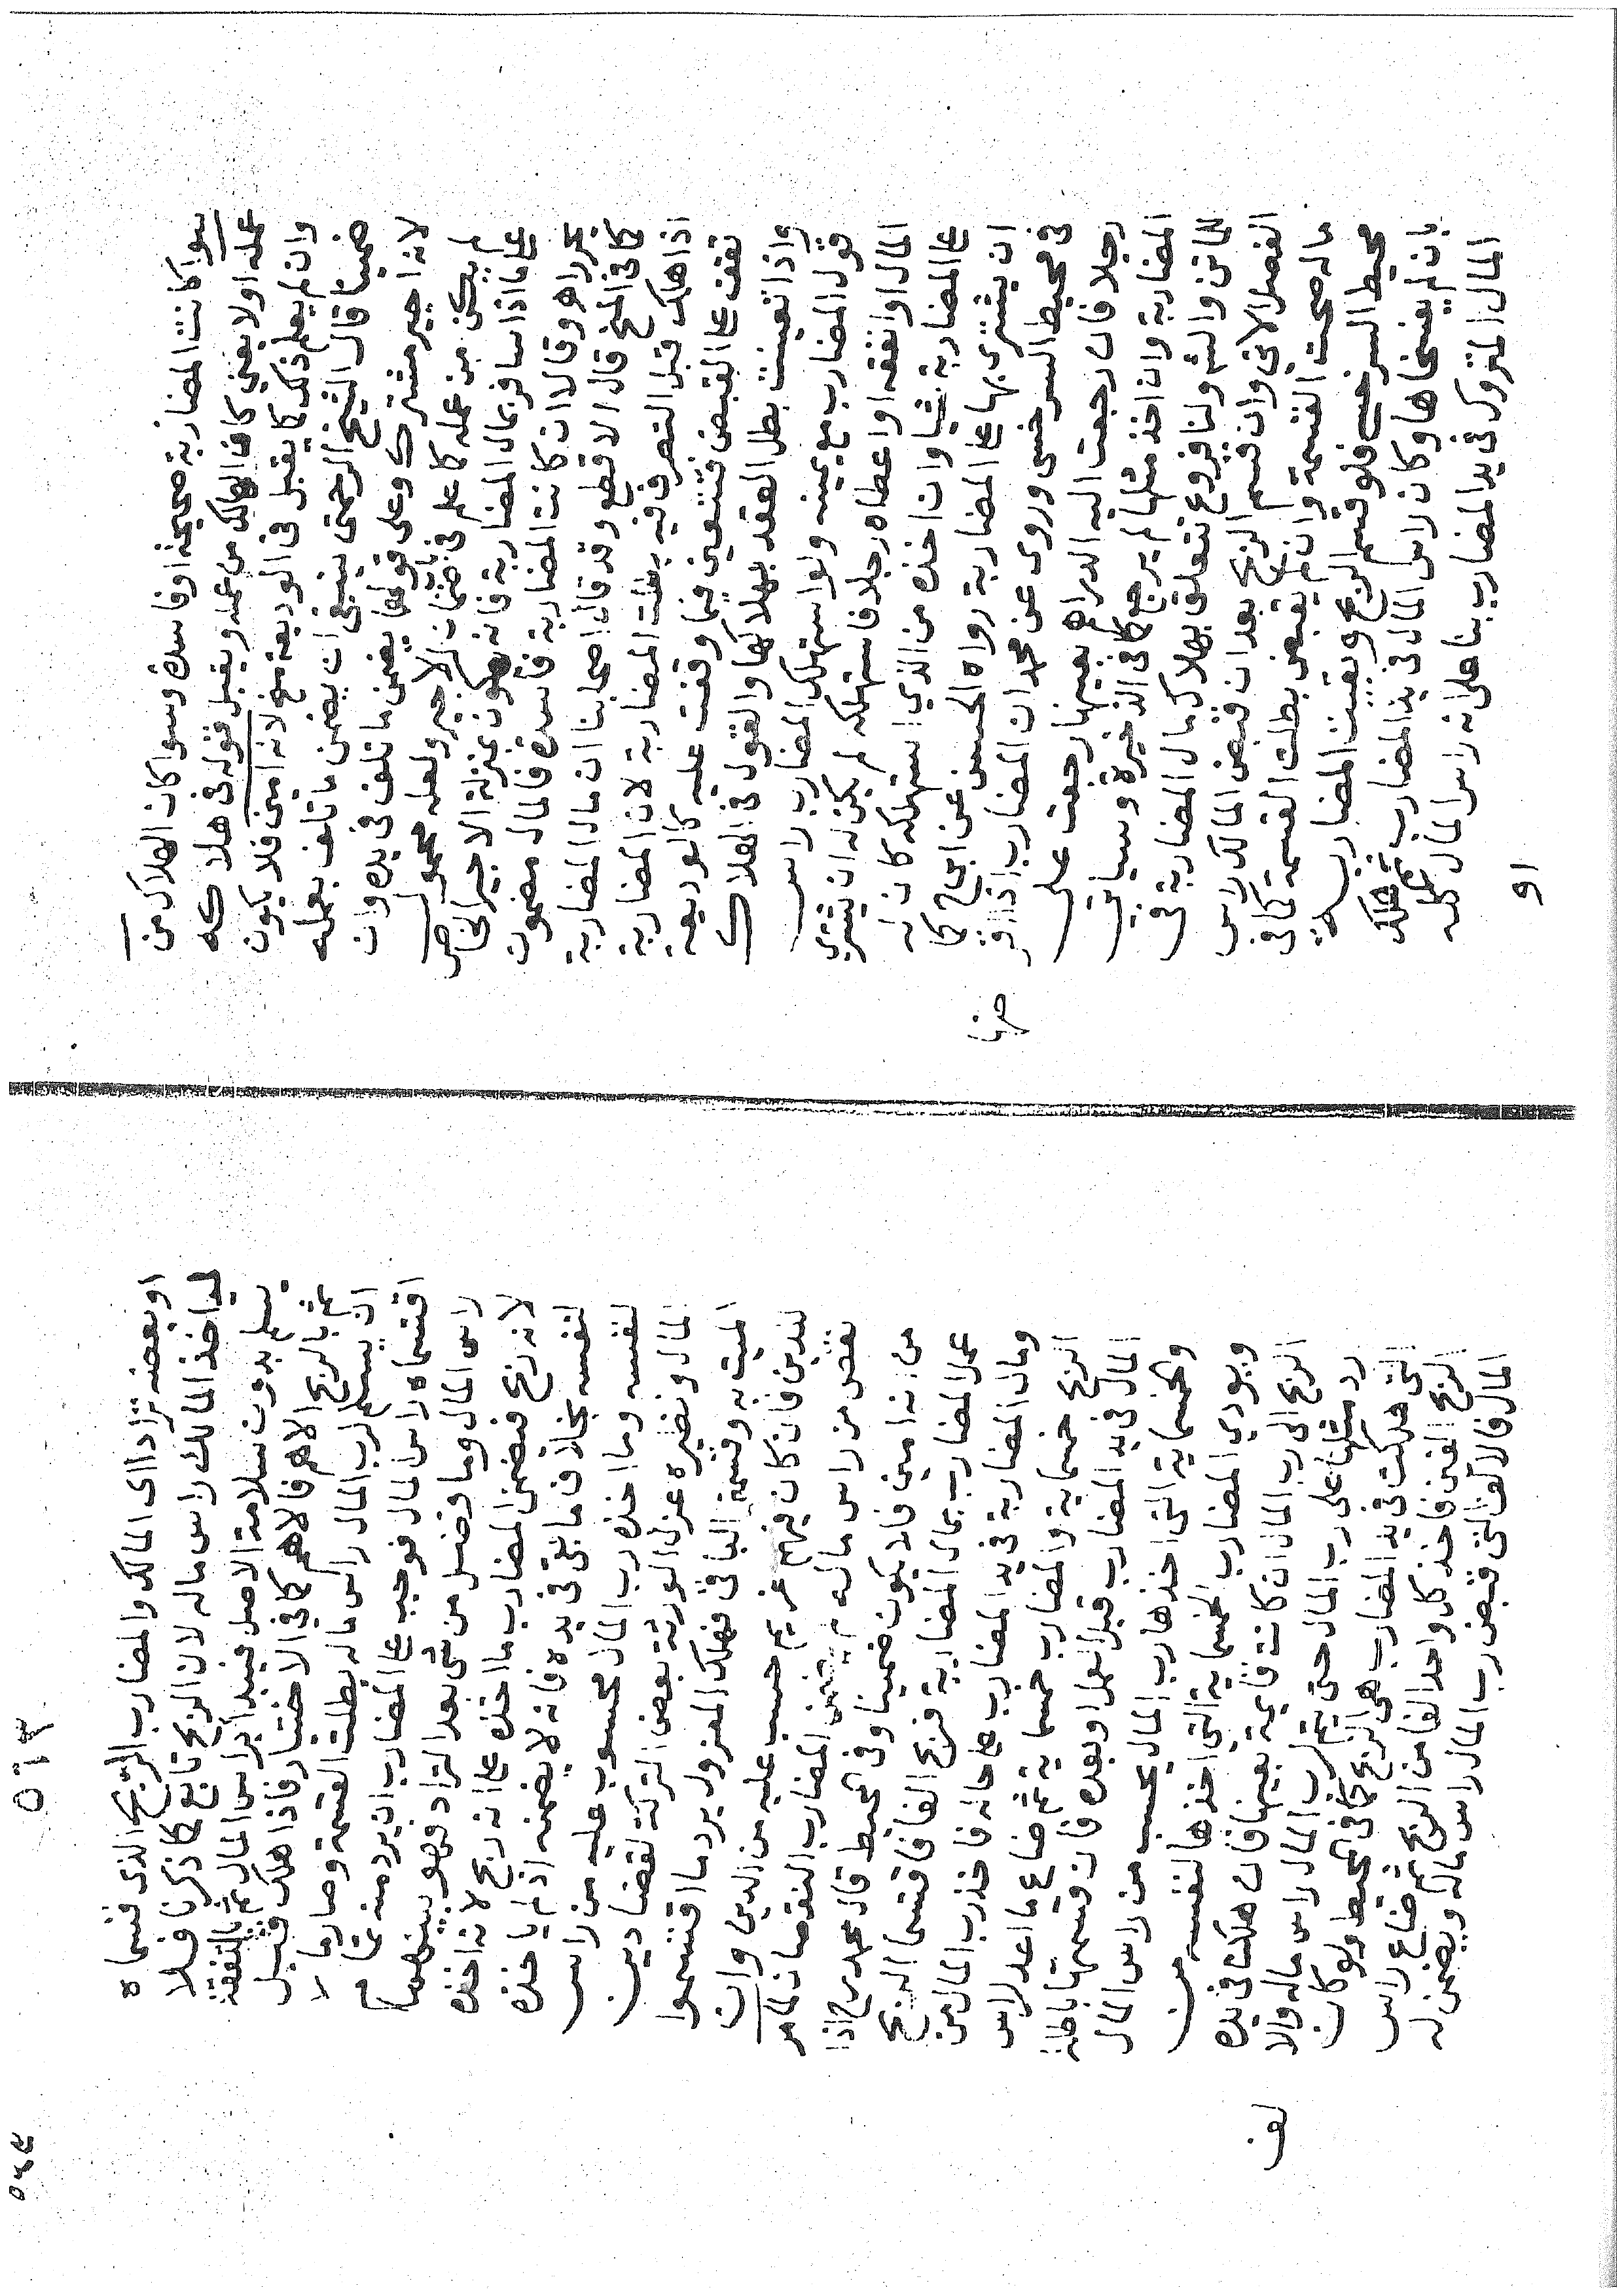 سوا كانت المضاربة صحيحة او فاسدة وسوا كان الهلاك من
عمله او لا يعني كان الهالك من عمله ويقبل قوله في هلاكه
وان لم يعلم ذلك كما يقبل في الوديعة منح لانه امين فلا يكون
ضمينا قال الشيخ الرحمتي ينبغي ان يضمن ما تلف بعمله
لانه اجير مشترك وعلى قولهما يضمن ما تلف في يده وان
لم يكن من عمله كما علم في باب ضمان الاجير ولعله محمول
على ما اذا سافر بمال المضاربة فانه يكون بمنزلة الاجير الخاص
يحرر اهـ وقالا ان كانت المضاربة فاسدة فالمال مضمون
كما في المنح قال الاقطع وقد قال اصحابنا ان مال المضاربة
اذا هلك قبل التصرف فيه بطلت المضاربة لان المضاربة
تقف على القبض فتتعين فيما وقفت عليه كالوديعة
واذا تعينت بطل العقد بهلاكها والقول في الهلاك
قول المضارب مع يمينه ولو استهلك المضارب راس
المال او انفقه او اعطاه رجلا فاستهلكه لم يكن له ان يشتري
على المضاربة شيا وان اخذه من الذي استهلكه كان له
ان يشتري بها على المضاربة رواه الحسن عن ابي ح كما
في محيط السرخسي وروى عن محمد ان المضارب اذا اقرض
رجلا فان رجعت اليه الدراهم بعينها رجعت على
المضاربة وان اخذ مثلها لم يرجع كما في الذخيرة وسياتي
للماتن والشم ولنا فروع تتعلق بهلاك مال المضاربة في
الفصل الاتي وان قسم الربح بعد ان قبض المالك راس
ماله صحت القسمة وان لم يقبض بطلت القسمة كما في
محيط السرخسي فلو قسم الربح وبقيت المضاربة
بان لم يفسخاها وكان راس المال في يد المضارب ثم هلك
المال المتروك في يد المضارب بنا على انه راس المال كله
او
٥١٤
او بعضه ترادا اى المالك والمضارب الربح الذى قسماه
لياخذ المالك راس ماله لان الربح تابع كما ذكرنا فلا
يسلم بدون سلامة الاصل فيبدا براس المال ثم بالنفقة
ثم بالربح الاهم فالاهم كما في الاختيار فاذا هلك قبل
ان يسلم لرب المال راس ماله بطلت القسمة وصار ما
اقتسماه راس المال فوجب على المضارب ان يرد منه تمام
راس المال وما فضل من شي بعد التراد فهو بينهما
لانه ربح فيضمن المضارب ما اخذه على انه ربح لانه اخذه
لنفسه بخلاف ما بقي في يده فانه لا يضمنه اذ لم ياخذه
لنفسه وما اخذه رب المال محسوب عليه من راس
المال ونظيره عزل الورثة بعض التركة لقضا دين
الميت به وقسمة الباقي فهلك المعزول يرد ما اقتسموا
للدين فان كان فيهم غريم حسب عليه من الدين وان
نقص من راس ماله لم يضمن المضارب النقصان لما مر
من انه امين فلا يكون ضمينا وفي المحيط قال محمد رح اذا
عمل المضارب بمال المضاربة فربح الفا فاقتسما الربح
ومال المضاربة في يد المضارب على حاله فاخذ رب المال من
الربح خمسماية والمضارب خمسماية ثم ضاع ما اعد لراس
المال في يد المضارب قبل العمل او بعده فان قسمتهما باطلة
والخمسماية التي اخذها رب المال يحسب من راس المال
ويودي المضارب الخمسماية التي اخذها لنفسه من
الربح الى رب المال ان كانت قايمة بعينها فان هلكت في يده
رد مثلها على رب المال حتى يتم لرب المال راس ماله والا
التي هلكت في يد المضارب هى الربح كما في المحيط ولو كان
الربح الفين فاخذ كل واحد الفا من الربح ثم ضاع راس
المال فالالف التي قبض رب المال راس ماله ويضمن له